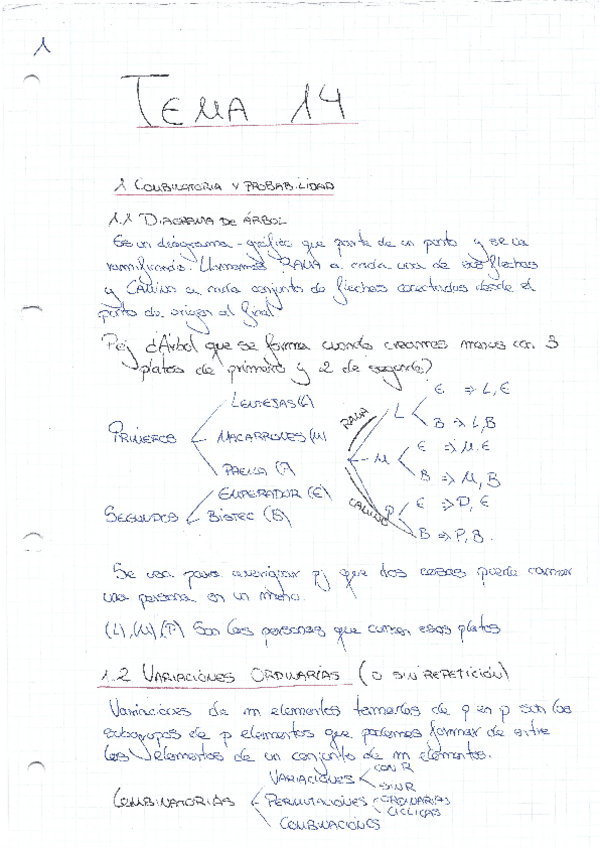 1
TEMA 14
1 COMBINATORIA Y PROBABILIDAD
1.1 DIAGRAMA DE ÁRBOL
Es un diagrama-gráfico que parte de un punto y se va
ramificando. Llamamos RAMA a cada una de sus flechas
y CAMINO a cada conjunto de flechas conectadas desde el
punto de origen al final
P.ej ¿Árbol que se forma cuando creamos menus con 3
platos de primero y 2 de segundo?
PRIMEROS
LENTEJAS (L)
MACARRONES (M)
PAELLA (P)
SEGUNDOS
EMPERADOR (E)
BISTEC (B)
RAMA
CAMINO
L
E ⇒ L, E
B ⇒ L, B
M
E ⇒ M, E
B ⇒ M, B
P
E ⇒ P, E
B ⇒ P, B.
Se usa para averiguar pj que dos cosas puede comer
una persona en un menu.
(L), (M) (P) Son las personas que comen esos platos
1.2 VARIACIONES ORDINARIAS (O SIN REPETICIÓN)
Variaciones de m elementos de p en p son los
subgrupos de p elementos que podemos formar de entre
los elementos de un conjunto de m elementos.
COMBINATORIAS
VARIACIONES
CON R
SIN R
PERMUTACIONES
ORDINARIAS
CÍCLICAS
COMBINACIONES